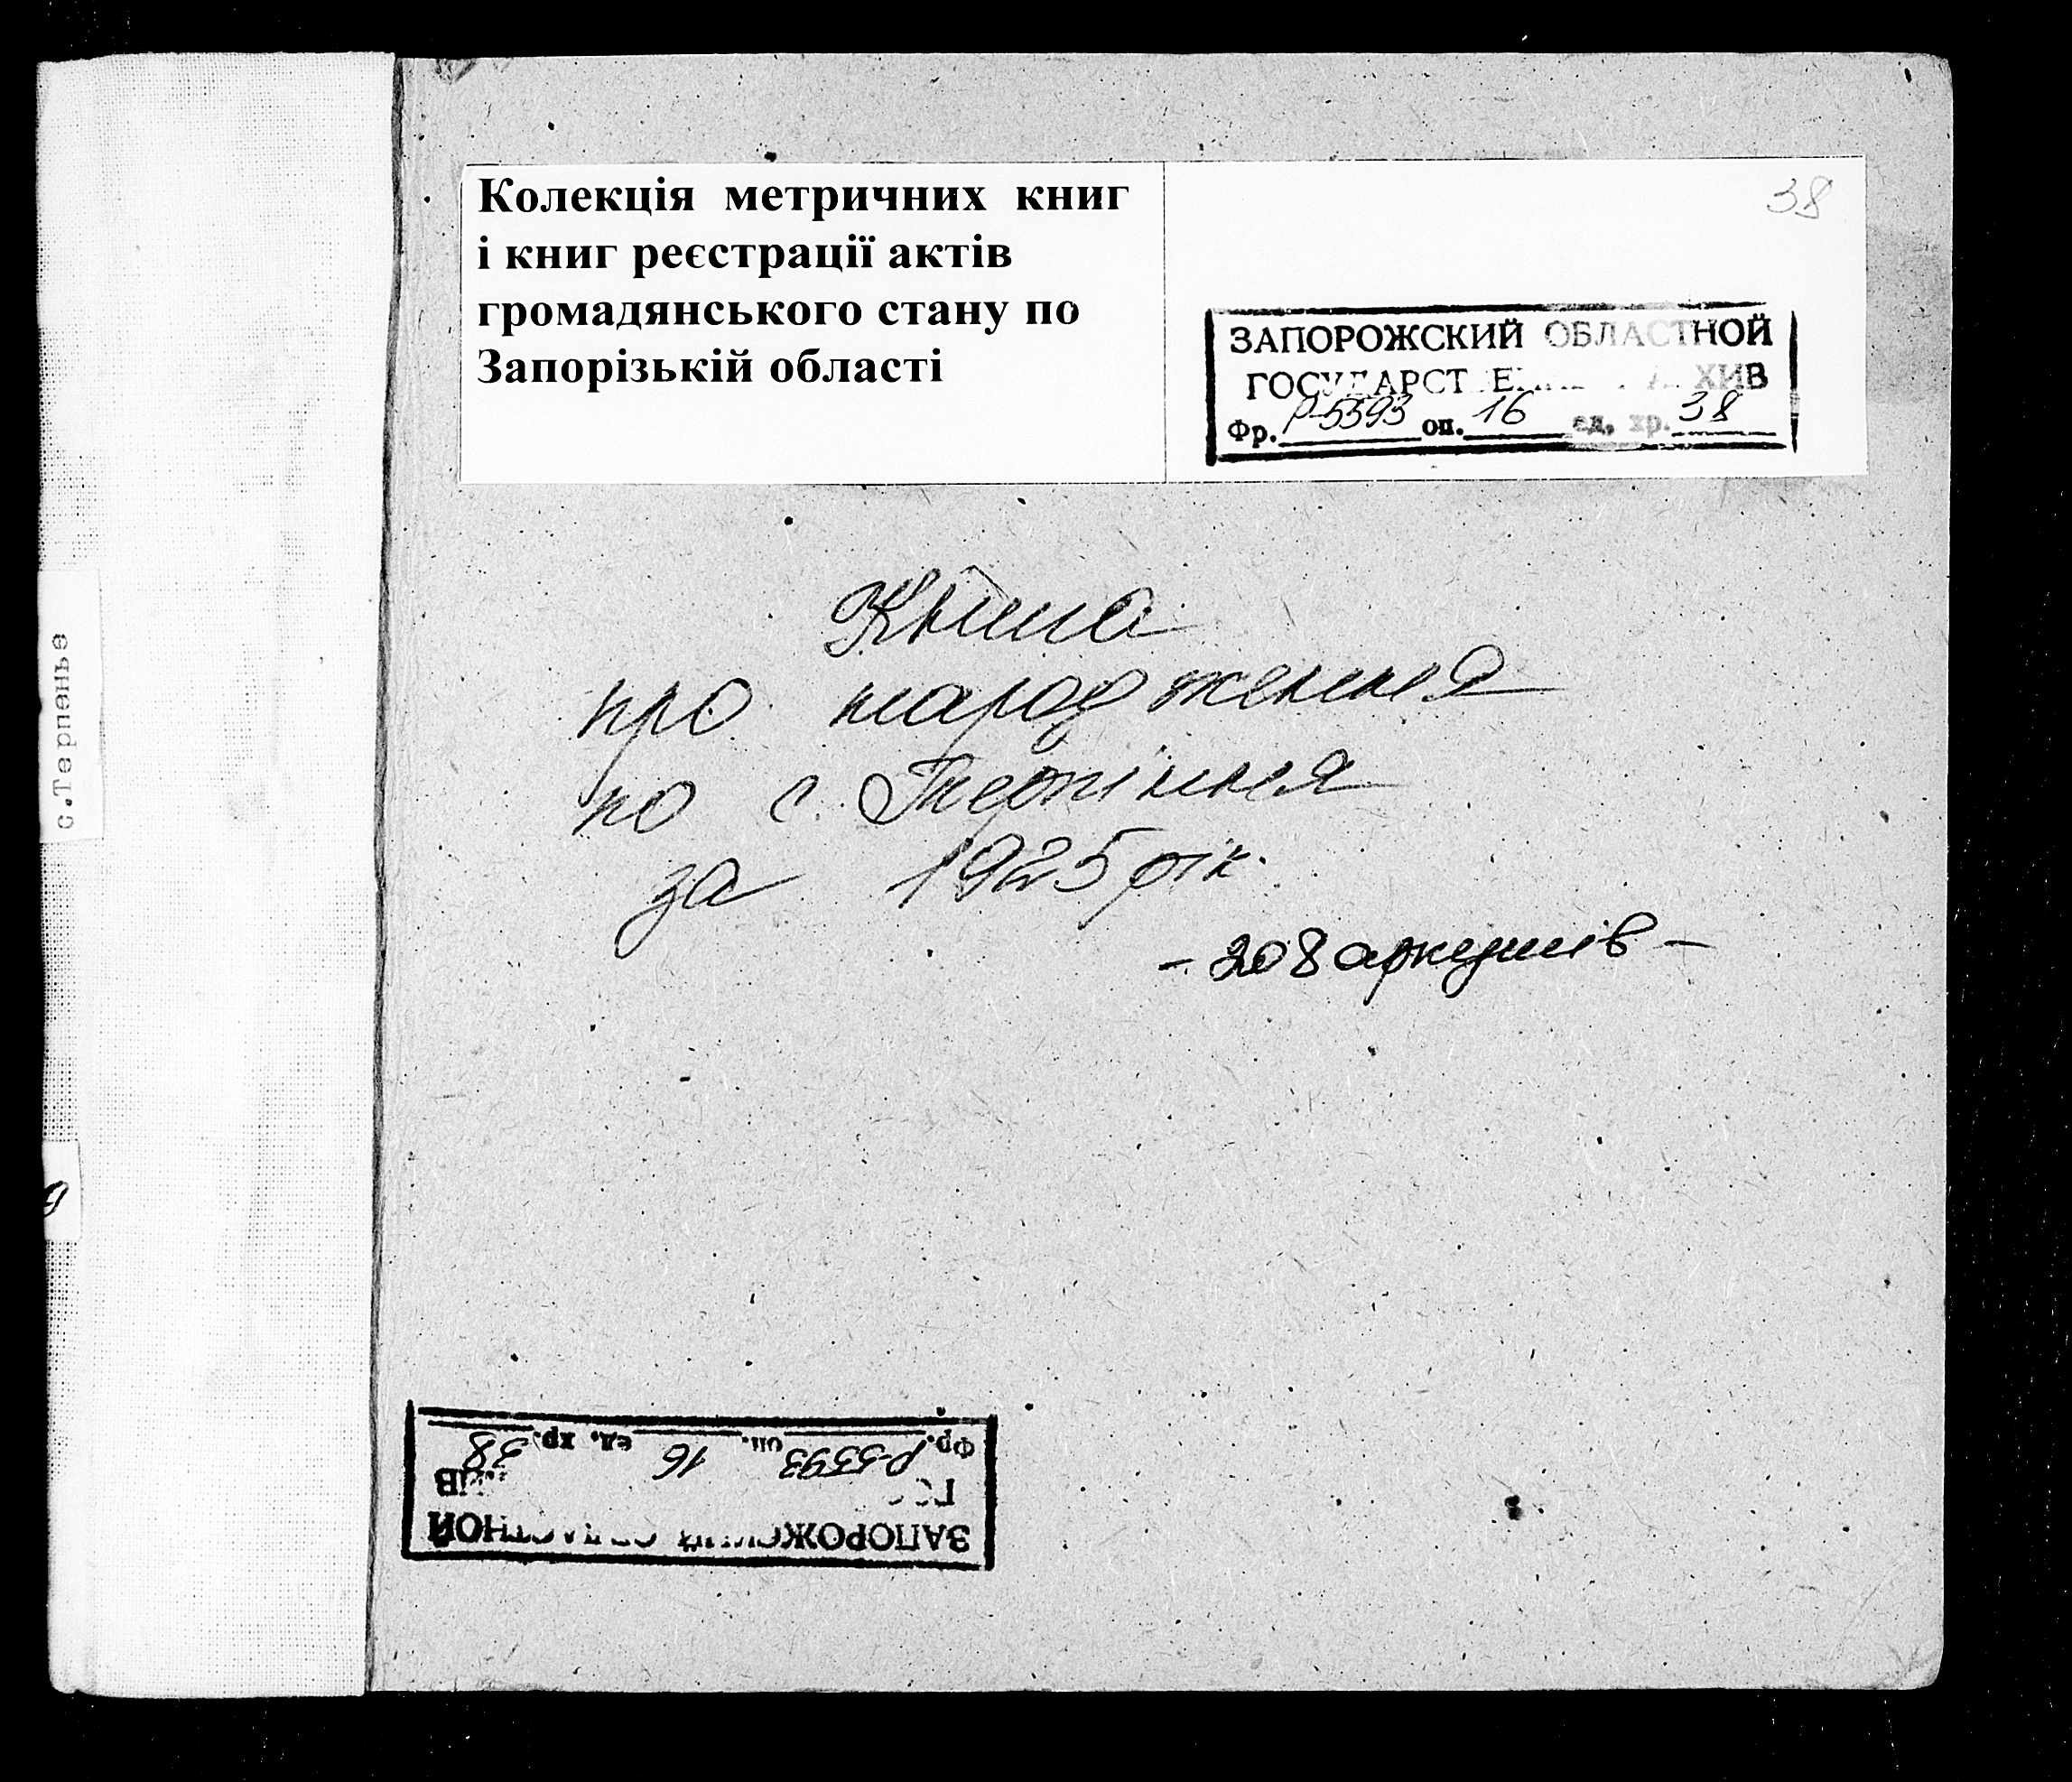 Колекція метричних книг
і книг реєстрації актів
громадянського стану по
Запорізькій області
38
ЗАПОРОЖСКИЙ ОБЛАСТНОЙ
ГОСУДАРСТВЕННЫЙ АРХИВ
Фр. Р-5593 оп. 16 ед. хр. 38
Книга
про народження
по с. Терпіння
за 1925 рік
- 208 аркушів -
с.Терпенье
9
ЗАПОРОЖСКИЙ ОБЛАСТНОЙ
Фр. Р-5593 оп. 16 ед. хр. 38